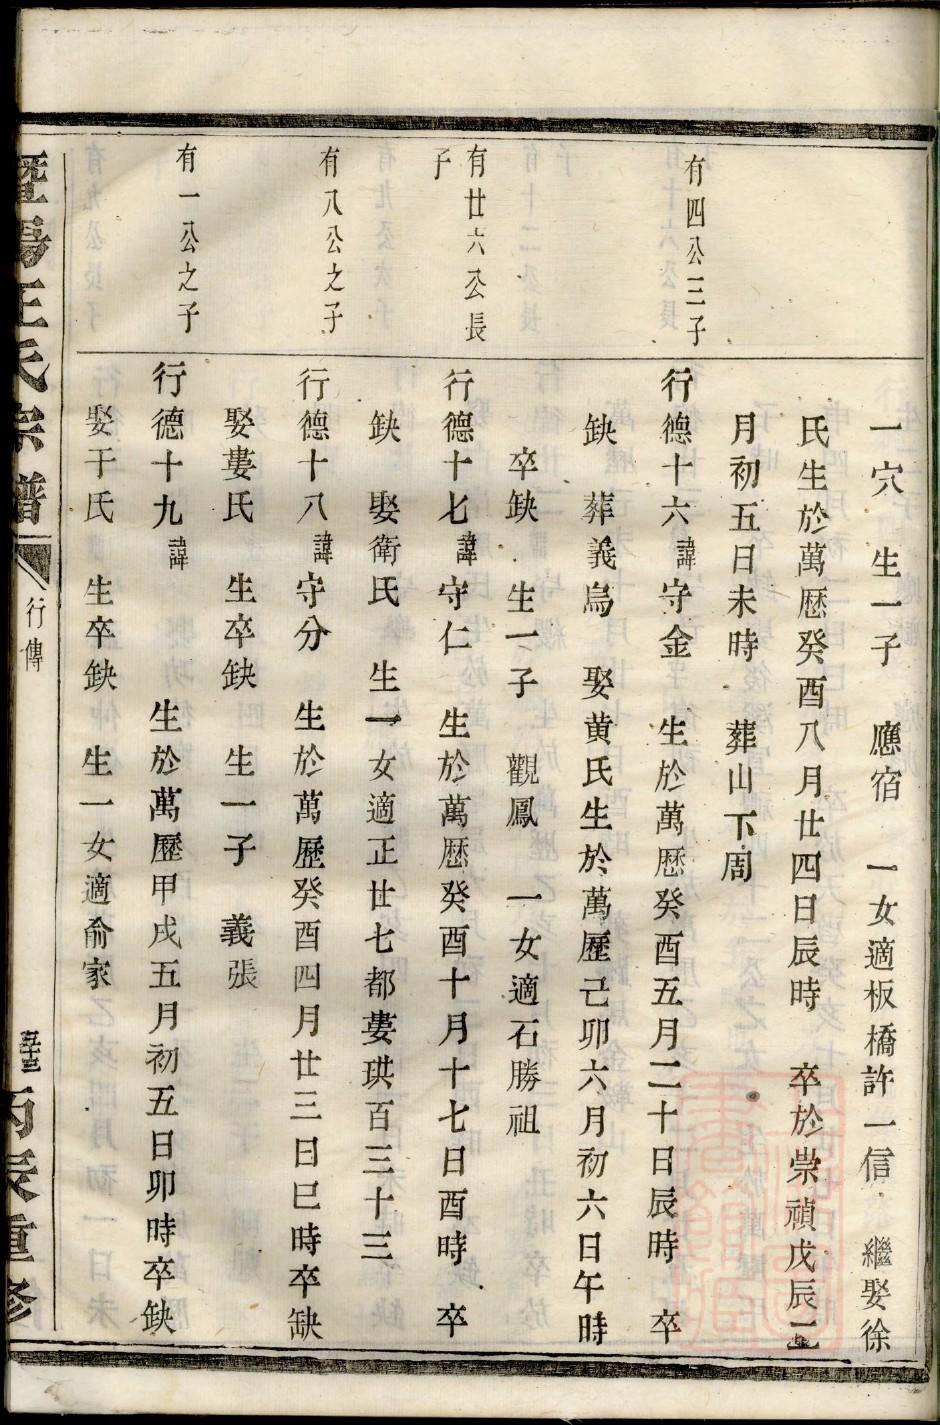 一穴 生一子 應宿 一女適板橋許一信 繼娶徐
氏生於萬歷癸酉八月廿四日辰時 卒於崇禎戊辰二
月初五日未時 葬山下周
有四公三子
行德十六諱守金 生於萬歷癸酉五月二十日辰時 卒
缺 葬義烏 娶黄氏生於萬歷己卯六月初六日午時
卒缺 生一子 觀鳳 一女適石勝祖
有廿六公長
子
行德十七諱守仁 生於萬歷癸酉十月十七日酉時 卒
缺 娶衛氏 生一女適正廿七都婁珙百三十三
有八公之子
行德十八諱守分 生於萬歷癸酉四月廿三日巳時卒缺
娶婁氏 生卒缺 生一子 義張
有一公之子
行德十九諱 生於萬歷甲戌五月初五日卯時卒缺
娶于氏 生卒缺 生一女適俞家
暨陽王氏宗譜
行傳
丙辰重修